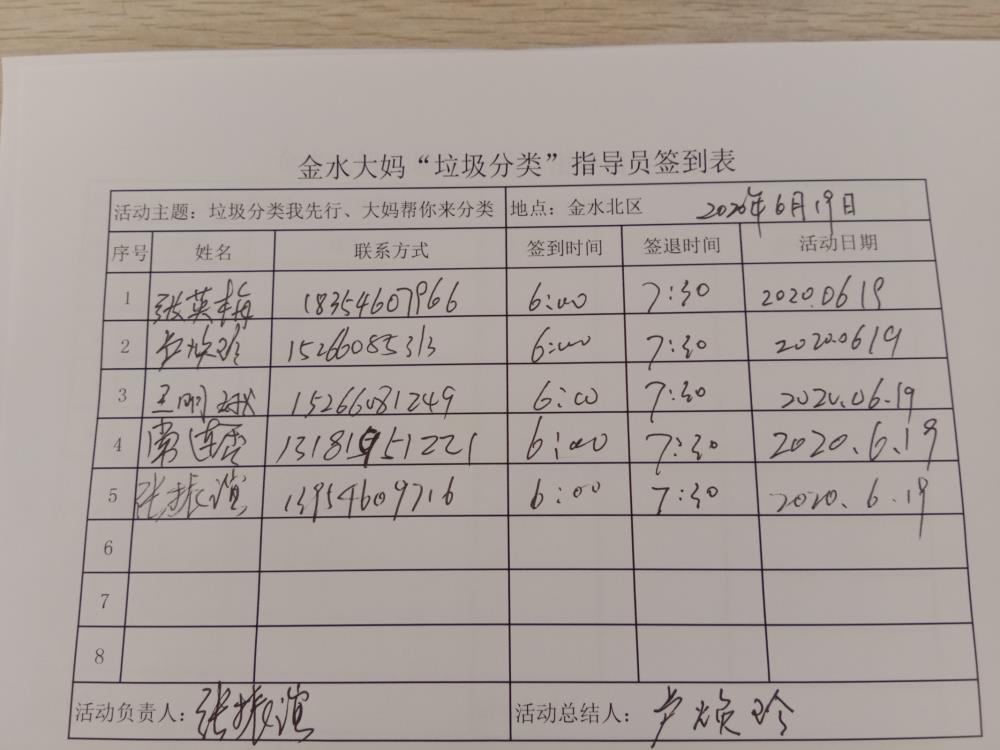 金水大妈“垃圾分类”指导员签到表
活动主题：垃圾分类我先行、大妈帮你来分类 地点：金水北区 2020年6月19日
序号 姓名 联系方式 签到时间 签退时间 活动日期
1 张英梅 18354607966 6:00 7:30 2020.0619
2 卢焕玲 15266085313 6:00 7:30 2020.0619
3 王明 15266081249 6:00 7:30 2020.06.19
4 常莲香 13181951221 6:00 7:30 2020.6.19
5 张振谊 13954609716 6:00 7:30 2020.6.19
6
7
8
活动负责人：张振谊 活动总结人：卢焕玲